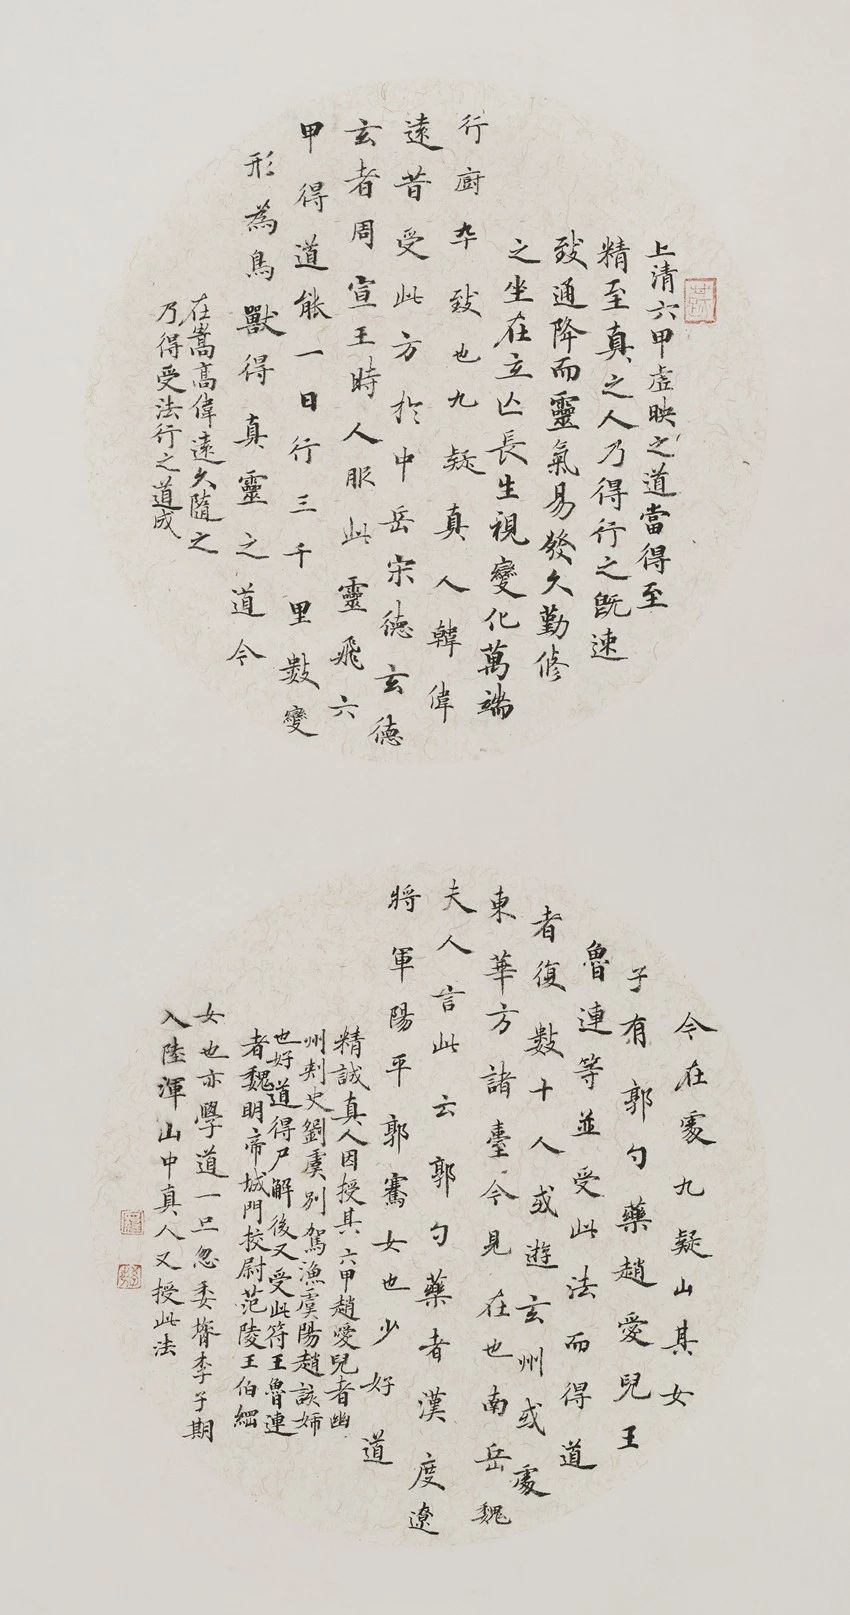 上清六甲虛映之道當得至
精至真之人乃得行之既速
致通降而靈氣易發久勤修
之坐在立亡長生視變化萬端
行廚卒致也九疑真人韓偉
遠昔受此方於中岳宋德玄德
玄者周宣王時人服此靈飛六
甲得道能一日行三千里數變
形為鳥獸得真靈之道今
在嵩高偉遠久隨之
乃得受法行之道成
今在處九疑山其女
子有郭勺藥趙愛兒王
魯連等並受此法而得道
者復數十人或遊玄州或處
東華方諸臺今見在也南岳魏
夫人言此云郭勺藥者漢度遼
將軍陽平郭騫女也少好道
精誠真人因授其六甲趙愛兒者幽
州刺史劉虞別駕漁虞陽趙該姊
也好道得尸解後又受此符王魯連
者魏明帝城門校尉范陵王伯綱
女也亦學道一旦忽委壻李子期
入陸渾山中真人又授此法